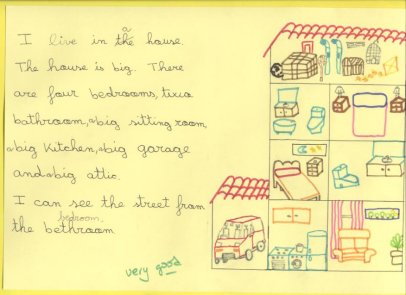 a
I live in the house.
The house is big. There
are four bedrooms, tixo
bathroom, a big sitting room,
a big kitchen, a big garage
and a big attic.
I can see the street from
bedroom
the bethroom
very good